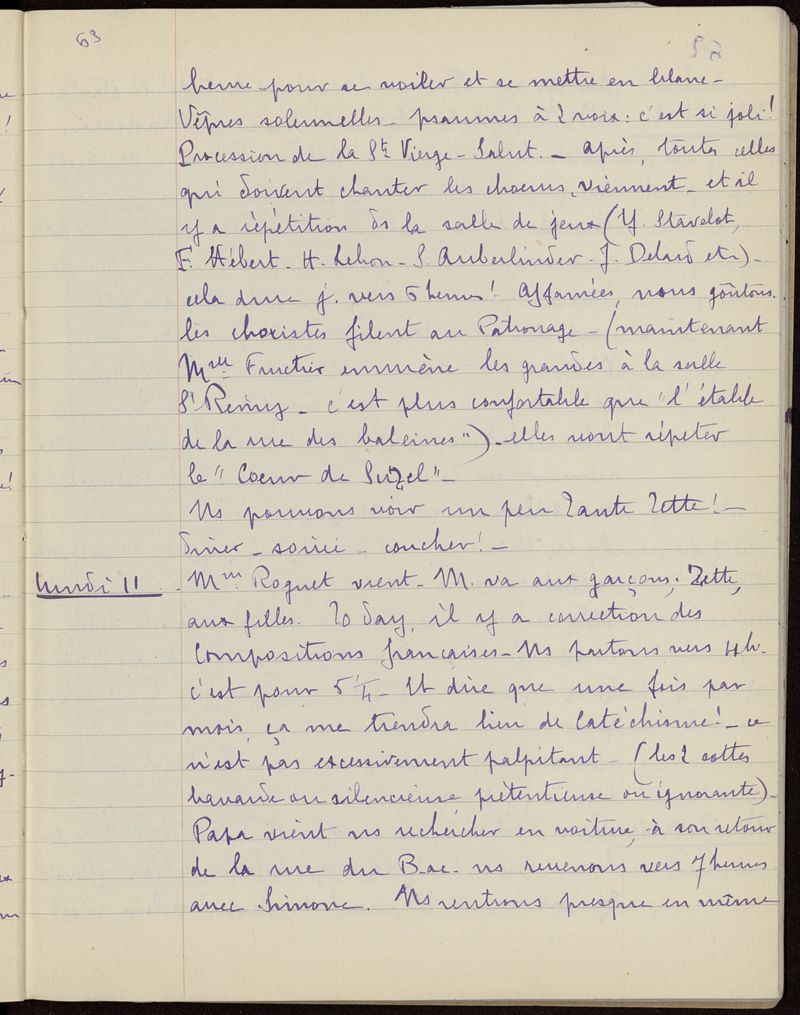 63
heure pour se voiler et se mettre en blanc -
Vêpres solennelles - psaumes à 2 voix : c'est si joli !
Procession de la Ste Vierge - Salut. - après, toutes celles
qui doivent chanter les choeurs, viennent - et il
y a répétition ds la salle de jeux (Y. Stavelot,
F. Hébert - H. Lehon - S. Auberlinder - J. Delard etc) -
cela dure j. vers 5 heures ! Affamées, nous goûtons.
les choristes filent au Patronage - (maintenant
Melle Fruetier emmène les grandes à la salle
St Remy - c'est plus confortable que "l'étable
de la rue des baleines") - elles vont répéter
le "Coeur de Suzel" -
Ns pouvons voir un peu Tante Zette ! -
dîner - soirée - coucher ! -
lundi 11
Mme Roguet vient - M. va aux garçons ; Zette,
aux filles. To day, il y a correction des
compositions françaises - Ns partons vers 4h.
c'est pour 5 1/4 - Et dire que une fois par
mois, ça me tiendra lieu de Catéchisme ! - ce
n'est pas excessivement palpitant - (les 2 sottes
bavarde ou silencieuse prétentieuse ou ignorante) -
Papa vient ns rechercher en voiture, à son retour
de la rue du Bac - ns revenons vers 7 heures
avec Simone. Ns rentrons presque en même